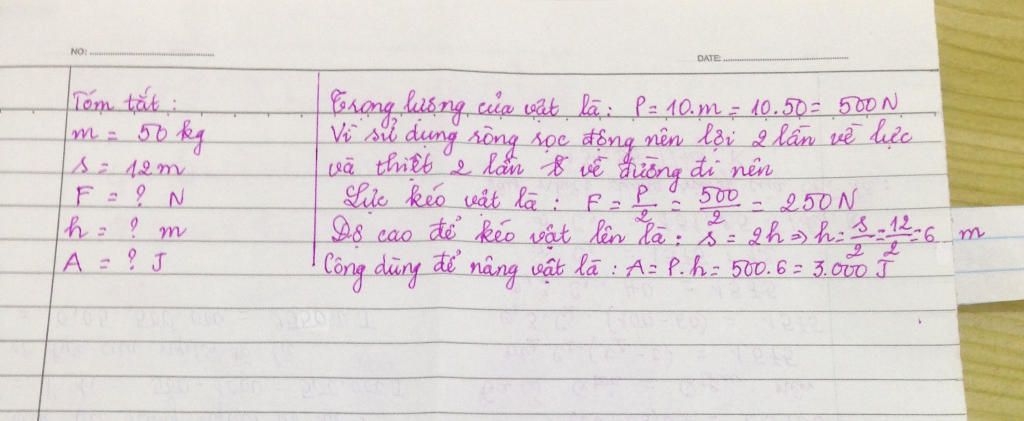 NO:
DATE:
Tóm tắt :
m = 50 kg
s = 12 m
F = ? N
h = ? m
A = ? J
Trọng lượng của vật là : P = 10.m = 10.50 = 500 N
Vì sử dụng ròng rọc động nên lợi 2 lần về lực
và thiệt 2 lần về đường đi nên
Lực kéo vật là : F = P/2 = 500/2 = 250 N
Độ cao để kéo vật lên là : s = 2h ⇒ h = s/2 = 12/2 = 6 m
Công dùng để nâng vật là : A = P.h = 500.6 = 3.000 J